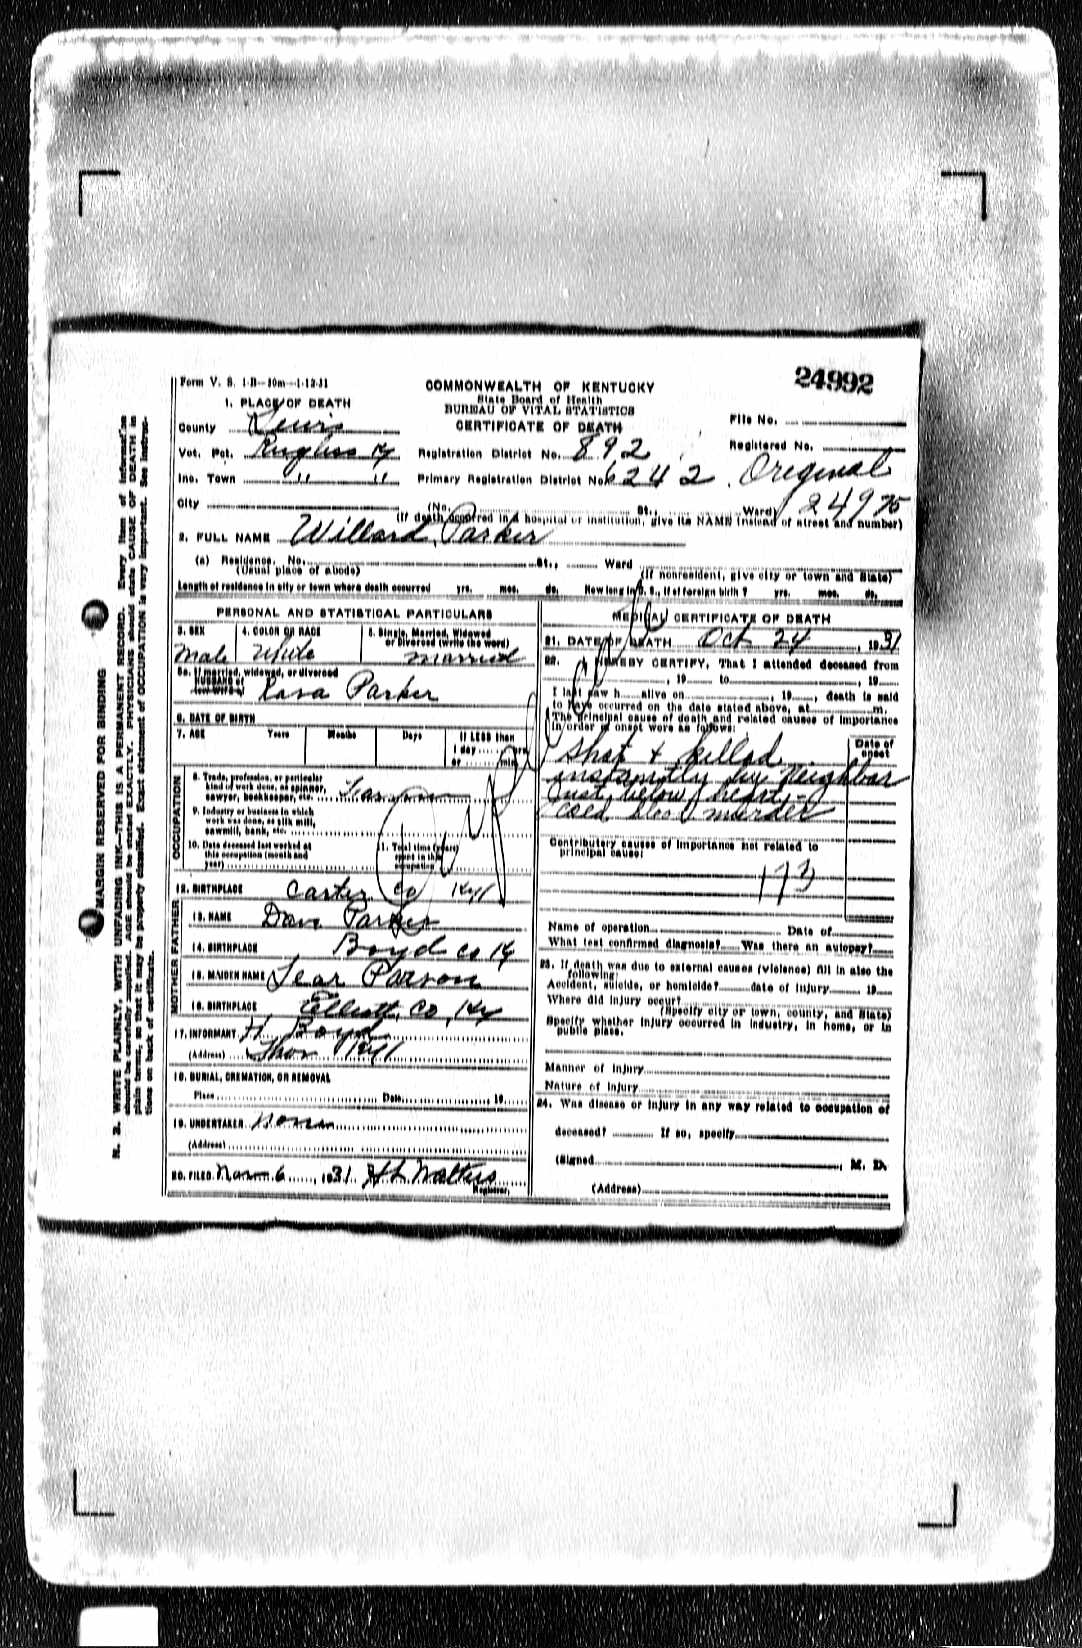 Form V. S. 1-B—30m—1-12-31
24992
COMMONWEALTH OF KENTUCKY
State Board of Health
BUREAU OF VITAL STATISTICS
CERTIFICATE OF DEATH
1. PLACE OF DEATH
County Lewis
Vot. Pct. Rugless Ky
Inc. Town " "
City (No. St., Ward)
Registration District No. 892
Primary Registration District No. 6242
File No.
Registered No.
Original
24975
(If death occurred in a hospital or institution, give its NAME instead of street and number)
2. FULL NAME Willard Parker
(a) Residence. No. St., Ward
(Usual place of abode) (If nonresident, give city or town and State)
Length of residence in city or town where death occurred yrs. mos. ds. How long in U. S., if of foreign birth? yrs. mos. ds.
Duplicate
PERSONAL AND STATISTICAL PARTICULARS
3. SEX 4. COLOR OR RACE 5. Single, Married, Widowed
or Divorced (write the word)
Male White married
5a. If married, widowed, or divorced
HUSBAND of
(or) WIFE of Rava Parker
6. DATE OF BIRTH
7. AGE Years Months Days If LESS than
1 day hrs.
or min.
OCCUPATION
8. Trade, profession, or particular
kind of work done, as spinner,
sawyer, bookkeeper, etc.
9. Industry or business in which
work was done, as silk mill,
sawmill, bank, etc.
10. Date deceased last worked at
this occupation (month and
year)
11. Total time (years)
spent in this
occupation
12. BIRTHPLACE Carter Co Ky
FATHER
13. NAME Dave Parker
14. BIRTHPLACE Boyd Co Ky
MOTHER
15. MAIDEN NAME
16. BIRTHPLACE Elliott Co, Ky
17. INFORMANT H. Boyd
(Address) Ky
18. BURIAL, CREMATION, OR REMOVAL
Place Date 19
19. UNDERTAKER none
(Address)
20. FILED Nov 6, 1931. H L Walters
Registrar.
MEDICAL CERTIFICATE OF DEATH
21. DATE OF DEATH Oct 24, 1931
22. I HEREBY CERTIFY, That I attended deceased from
, 19 to , 19
I last saw h alive on , 19 , death is said
to have occurred on the date stated above, at m.
The principal cause of death and related causes of importance
in order of onset were as follows:
Date of
onset
Shot & killed
instantly by Neighbor
Just below heart -
cold murder
Contributory causes of importance not related to
principal cause:
173
Name of operation Date of
What test confirmed diagnosis? Was there an autopsy?
23. If death was due to external causes (violence) fill in also the
following:
Accident, suicide, or homicide? date of injury 19
Where did injury occur?
(Specify city or town, county, and State)
Specify whether injury occurred in industry, in home, or in
public place.
Manner of injury
Nature of injury
24. Was disease or injury in any way related to occupation of
deceased? If so, specify
(Signed , M. D.
(Address)
MARGIN RESERVED FOR BINDING
N. B. WRITE PLAINLY, WITH UNFADING INK—THIS IS A PERMANENT RECORD. Every item of information
should be carefully supplied. AGE should be stated EXACTLY. PHYSICIANS should state CAUSE OF DEATH in
plain terms, so that it may be properly classified. Exact statement of OCCUPATION is very important. See instruc-
tions on back of certificate.